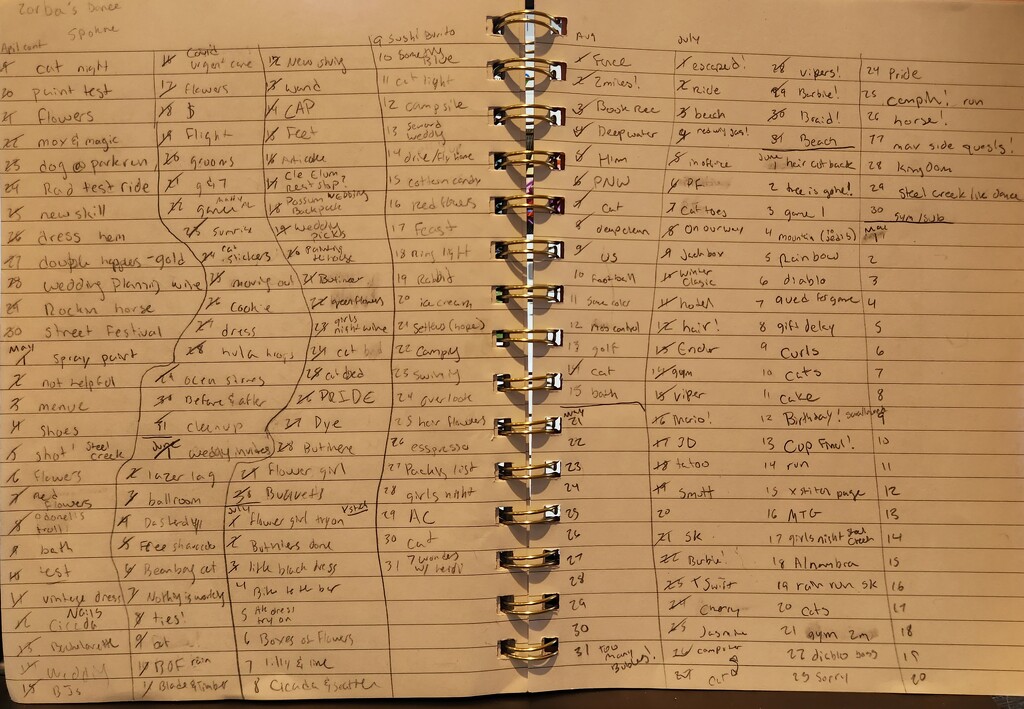 Zorba's Dance
Spokne
cat night
20 paint test
21 flowers
22 mox & magic
23 dog @ parkrun
24 Rad test ride
25 new skill
26 dress hem
27 double hoppies - gold
28 wedding planning wine
29 Rockin horse
30 Street Festival
May
1 spray paint
2 not helpful
3 menue
4 Shoes
5 shot! Steel Creek
6 flowers
7 Red flowers
8 Odonell's troll!
9 bath
10 test
11 vintage dress
12 Nails Cicada
13 Bachelorette
14 Wedding
15 BJs
16 Covid urgent care
17 flowers
18 $
19 Flight
20 grooms
21 9 & 7
22 game
23 sunrise
24 stickers
25 moving out
26 cookie
27 dress
28 hula hoops
29 ocen stones
30 Before & after
31 cleanup
June
1 wedding invites
2 lazer tag
3 ballroom
4 Dasterdly
5 Free sharcado
6 Beanbag cat
7 Nothing is working
8 ties!
9 cat
10 BOF rain
11 Blade & timber
12 New string
13 wand
14 CAP
15 Feet
16 Anti cake
17 Cle Elum Rest stop?
18 Possum wedding Backpack
19 wedding picks
20 Painting the house
21 Butineer
22 green flowers
23 girls night wine
24 cat bed
25 cat bed
26 PRIDE
27 Dye
28 Butinere
29 Flower girl
30 Buquetts
July
1 flower girl try on
2 Butniers done
3 little black dress
4 Bike to the bar
5 Ale dress try on
6 Boxes of Flowers
7 Lilly & line
8 Cicada &
9 Sushi Burito
10 Blue
11 cat light
12 campsite
13 Seward wedding
14 drive/fly home
15 cotton candy
16 Red flowers
17 Feast
18 ring light
19 Rabbit
20 ice cream
21 Settlers (hope)
22 Camping
23 Swimming
24 overlook
25 hair flowers
26 esspresso
27 Packing list
28 girls night
29 AC
30 Cat
31 7 wonders w/ heidi
Aug
1 Fence
2 2 miles!
3 Book Rec
4 Deep water
5 Hmm
6 PNW
7 Cat
8 deep clean
9 US
10 Football
11 Same color
12 Pest control
13 golf
14 Cat
15 bath
May
21
22
23
24
25
26
27
28
29
30
31 Too many Bubbles!
July
1 escaped!
2 Ride
3 beach
4 red wig son!
5 in office
6 PF
7 Cat toes
8 On our way
9 Jack box
10 Winter Classic
11 hotel
12 hair!
13 Ender
14 gym
15 viper
16 Mario!
17 3D
18 tatoo
19 Smutt
20
21 SK
22 Barbie!
23 T Swift
24 Cherry
25 Jasmine
26 computer
27 Cat
28 vipers!
29 Barbie!
30 Braid!
31 Beach
June
1 hair cut back
2 tree is gone!
3 game 1
4 mountin (in Jedi's)
5 Rainbow
6 diablo
7 qued for game
8 gift delay
9 Curls
10 Cats
11 cake
12 Birthday!
13 Cup Final!
14 run
15 x stitch page
16 MTG
17 girls night Steel Creek
18 Alhambra
19 rain run SK
20 Cats
21 gym 2m
22 diablo boss
23 Sorry
24 Pride
25 Campin! run
26 horse!
27 mar side quests!
28 kingdom
29 Steel Creek line dance
30 gym/sub
May
1
2
3
4
5
6
7
8
9
10
11
12
13
14
15
16
17
18
19
20